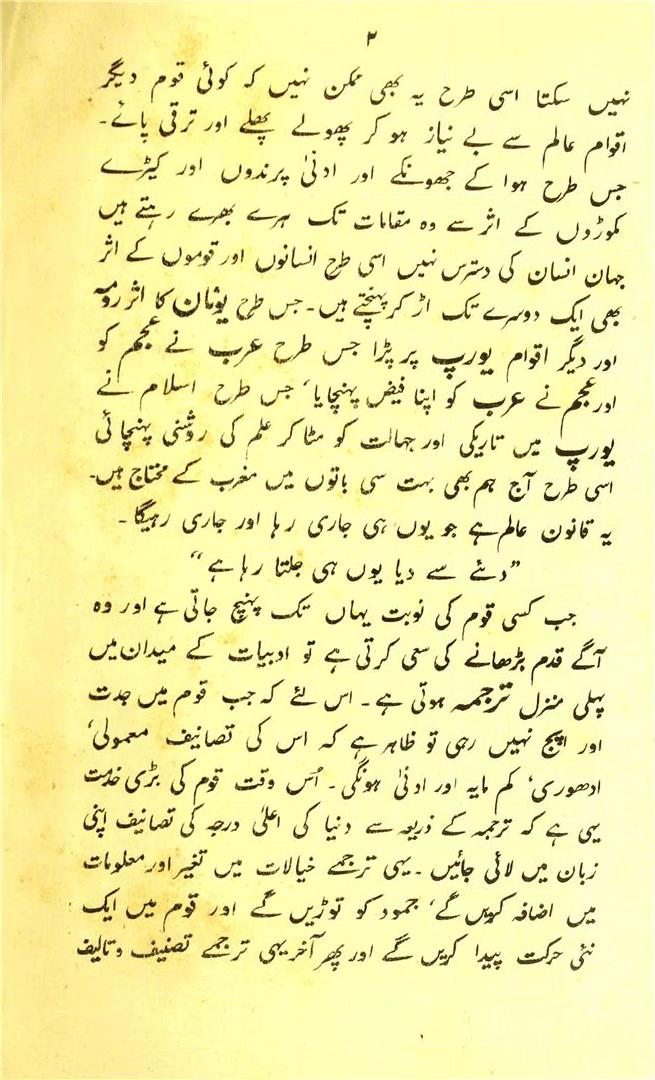 ۲
نہیں سکتا اسی طرح یہ بھی ممکن نہیں کہ کوئی قوم دیگر
اقوام عالم سے بے نیاز ہو کر پھولے پھلے اور ترقی پائے۔
جس طرح ہوا کے جھونکے اور ادنیٰ پرندوں اور کیڑے
مکوڑوں کے اثر سے وہ مقامات تک ہرے بھرے رہتے ہیں
جہان انسان کی دسترس نہیں اسی طرح انسانوں اور قوموں کے اثر
بھی ایک دوسرے تک اڑ کر پہنچتے ہیں۔ جس طرح یونان کا اثر رومہ
اور دیگر اقوام یورپ پر پڑا جس طرح عرب نے عجم کو
اور عجم نے عرب کو اپنا فیض پہنچایا، جس طرح اسلام نے
یورپ میں تاریکی اور جہالت کو مٹا کر علم کی روشنی پہنچائی
اسی طرح آج ہم بھی بہت سی باتوں میں مغرب کے محتاج ہیں۔
یہ قانون عالم ہے جو یوں ہی جاری رہا اور جاری رہیگا۔
”دئے سے دیا یوں ہی جلتا رہا ہے“
جب کسی قوم کی نوبت یہاں تک پہنچ جاتی ہے اور وہ
آگے قدم بڑھانے کی سعی کرتی ہے تو ادبیات کے میدان میں
پہلی منزل ترجمہ ہوتی ہے۔ اس لئے کہ جب قوم میں جدت
اور اپج نہیں رہی تو ظاہر ہے کہ اس کی تصانیف معمولی،
ادھوری، کم مایہ اور ادنیٰ ہونگی۔ اُس وقت قوم کی بڑی خدمت
یہی ہے کہ ترجمہ کے ذریعہ سے دنیا کی اعلیٰ درجہ کی تصانیف اپنی
زبان میں لائی جائیں۔ یہی ترجمے خیالات میں تغیر اور معلومات
میں اضافہ کریں گے، جمود کو توڑیں گے اور قوم میں ایک
نئی حرکت پیدا کریں گے اور پھر آخر یہی ترجمے تصنیف و تالیف